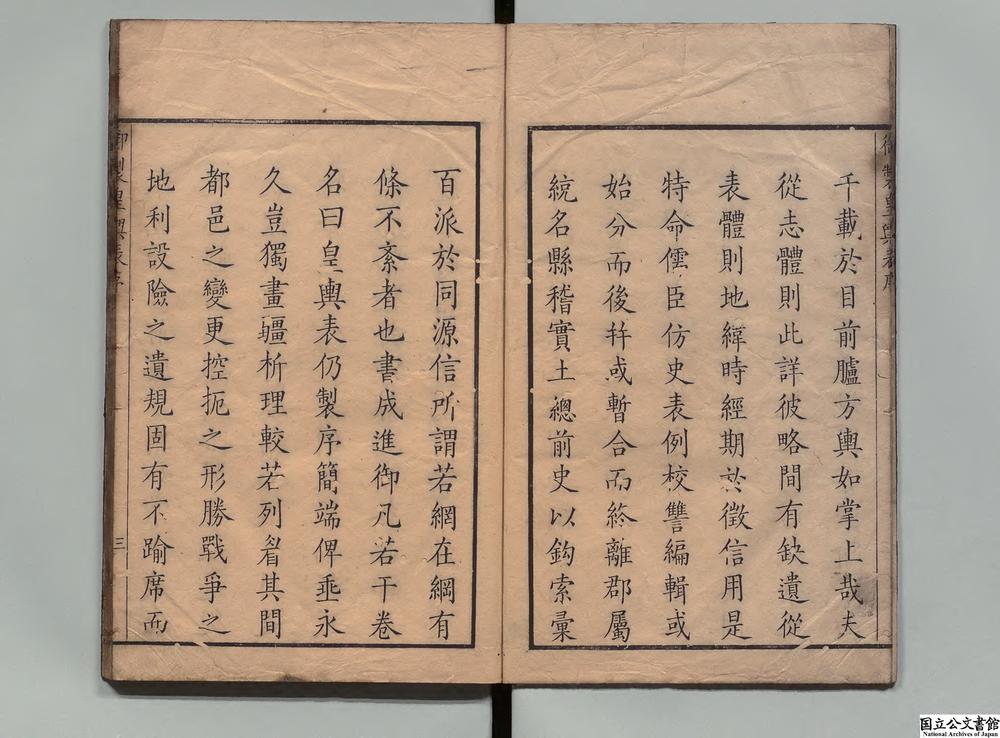 千載於目前臚方輿如掌上哉夫
從志體則此詳彼略間有缺遺從
表體則地緯時經期於徵信用是
特命儒臣仿史表例校讐編輯或
始分而後幷或暫合而終離郡屬
統名縣稽實土總前史以鈎索彙
百派於同源信所謂若網在綱有
條不紊者也書成進御凡若干卷
名曰皇輿表仍製序簡端俾垂永
久豈獨畫疆析理較若列眉其間
都邑之變更控扼之形勝戰爭之
地利設險之遺規固有不踰席而
御製皇輿表序
三
国立公文書館
National Archives of Japan